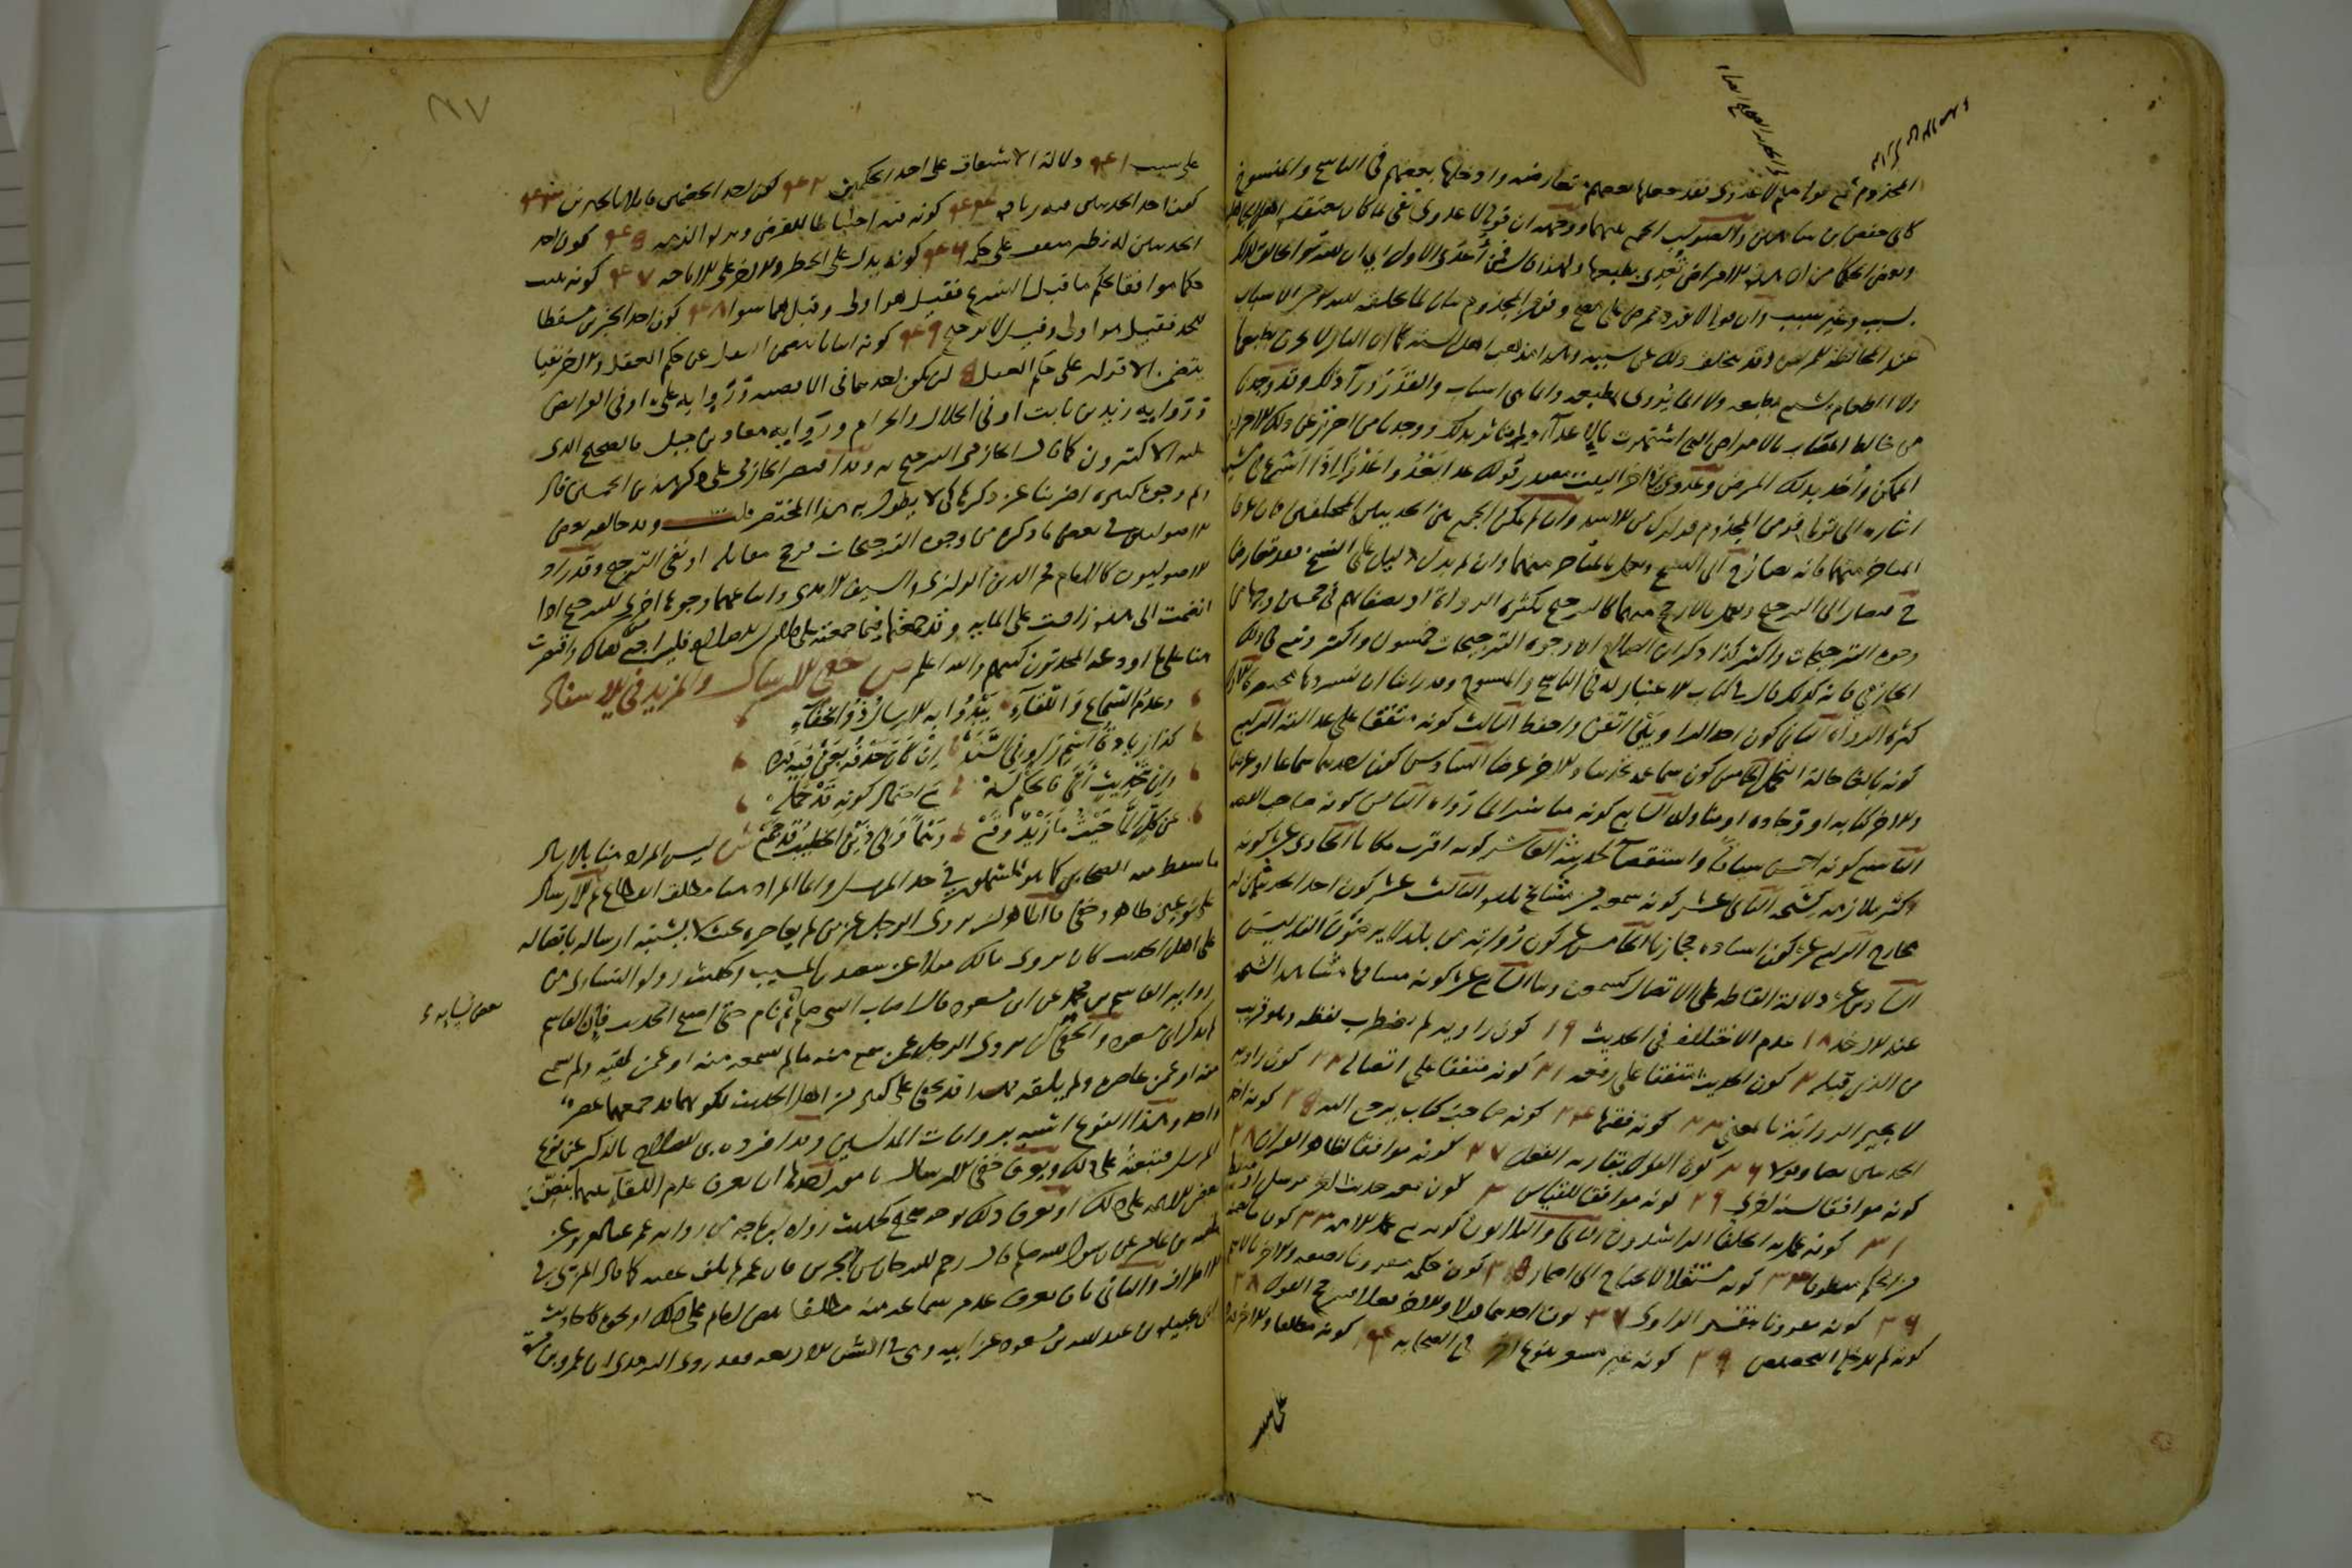 المجذوم مع قوله صلعم لا عدوى فقد جعلها بعضهم متعارضة وادخلها بعضهم في الناسخ والمنسوخ
كابي حفص بن شاهين والصواب الجمع بينهما ووجهه ان قوله لا عدوى نفي لما كان يعتقده اهل الجاهلية
وبعض الحكما من ان هذه الامراض تعدي بطبعها ولهذا قال فمن اعدى الاول اي ان الله هو الخالق لذلك
بسبب وغير سبب وان قوله لا يورد ممرض على مصح وفر من المجذوم بيان لما يخلقه الله من الاسباب
عند المخالطة للمريض وقد يتخلف ذلك عن سببه وهذا مذهب اهل السنة كما ان النار لا تحرق بطبعها
ولا الطعام يشبع بطبعه ولا الماء يروي بطبعه وانما هي اسباب والقدر ورآ ذلك وقد وجدنا
من خالط المصاب بالامراض التي اشتهرت بالاعدآ ولم يتاثر بذلك ووجدنا من احترز عن ذلك الاحتراز
الممكن واخذ بذلك المرض
اشاره الى قوله فر من المجذوم فرارك من الاسد وان لم يمكن الجمع بين الحديثين المختلفين فان عرفنا
المتاخر منهما فانه يصار الى النسخ ويعمل بالمتاخر منهما وان لم يدل دليل على النسخ فقد تعارضا
فيصار الى الترجيح ويعمل بالارجح منهما كالترجيح بكثرة الرواة او بصفاتهم في خمسين وجها من
وجوه الترجيحات واكثر كذا ذكر ابن الصلاح ان وجوه الترجيحات خمسون واكثر وتبع في ذلك
الحازمي فانه كذلك قال في كتاب الاعتبار له في الناسخ والمنسوخ وقد راينا ان نسردها مختصرة الاول
كثرة الرواة الثاني كون احد الراويين اتقن واحفظ الثالث كونه متفقا على عدالته الرابع
كونه بالغا حالة التحمل الخامس كون سماعه تحديثا والاخر عرضا السادس كون احدهما سماعا او عرضا
والاخر كتابه او وجاده او مناوله السابع كونه مباشرا لما رواه الثامن كونه صاحب القصه
التاسع كونه احسن سياقا واستقصآ لحديثه العاشر كونه اقرب مكانا الحادي عشر كونه
اكثر ملازمة لشيخه الثاني عشر كونه سمعه من مشايخ بلده الثالث عشر كون احد الحديثين له
مخارج الرابع عشر كون اسناده حجازيا الخامس عشر كون رواته من بلد لا يرضون التدليس
السادس عشر دلالة الفاظه على الاتصال كسمعت وحدثنا السابع عشر كونه مشافها مشاهدا لشيخه
عند الاخذ ١٨ عدم الاختلاف في الحديث ١٩ كون راويه لم يضطرب لفظه وهو قريب
من الذي قبله ٢٠ كون الحديث متفقا على رفعه ٢١ كونه متفقا على اتصاله ٢٢ كون راويه
لا يجيز الرواية بالمعنى ٢٣ كونه فقيها ٢٤ كونه صاحب كتاب يرجع اليه ٢٥ كونه احد
الحديثين نصا وقولا ٢٦ كون القول يقارنه الفعل ٢٧ كونه موافقا لظاهر القران ٢٨
كونه موافقا لسنة اخرى ٢٩ كونه موافقا للقياس ٣٠ كون معه حديث اخر مرسل او منقطع
٣١ كونه عمل به الخلفا الراشدون
من الحكم منطوقا ٣٤ كونه مستقلا لا يحتاج الى اضمار ٣٥ كون حكمه مقرونا بصفه والاخر بالاسم
٣٦ كونه مقرونا بتفسير الراوي ٣٧ كون احدهما قولا والاخر فعلا فيرجح القول ٣٨
كونه لم يدخله التخصيص ٣٩ كونه غير مشعر بنوع قدح في الصحابه ٤٠ كونه مطلقا والاخر ورد
على سبب
على سبب ٤١ دلالة الاشتقاق على احد الحكمين ٤٢ كون احد الخصمين قايلا بالخبرين ٤٣
كون احد الحديثين فيه زيادة ٤٤ كونه فيه احتياط للفرض وبراة الذمه ٤٥ كون احد
الحديثين له نظير متفق على حكمه ٤٦ كونه يدل على الحظر والاخر على الاباحه ٤٧ كونه يثبت
حكما موافقا لحكم ما قبل الشرع فقيل هو اولى وقيل هما سوا ٤٨ كون احد الخبرين مسقطا
للحد فقيل هو اولى وقيل لا ترجيح ٤٩ كونه اثباتا يتضمن النقل عن حكم العقل والاخر نفيا
يتضمن الاقرار على حكم العقل ٥٠ ان يكون احدهما في الاقضيه ورواية علي او في الفرايض
ورواية زيد بن ثابت او في الحلال والحرام ورواية معاذ بن جبل فالصحيح الذي
عليه الاكثرون كما قال الحازمي الترجيح به وقد اقتصر الحازمي على ذكر هذه الخمسين قال
وثم وجوه كثيره اضربنا عن ذكرها كي لا يطول به هذا المختصر قلت وقد خالفه بعض
الاصوليين في بعض ما ذكره من وجوه الترجيحات فرجح مقابله او نفى الترجيح وقد زاد
الاصوليون كالامام فخر الدين الرازي والسيف الامدي واتباعهما وجوها اخرى للترجيح اذا
انضمت الى هذه زادت على المايه وقد جمعتها فيما جمعته على كلام ابن الصلاح فليراجع هناك واقتصرت
هنا على ما اودعه المحدثون كتبهم والله اعلم ص خفي الارسال والمزيد في الاسناد
وعدم السماع واللقآء يبدوا به الارسال ذو الخفآء
كذا زيادة اسم راو في السند ان كان حذفه بعن فيه ورد
وان بتحديث اتى فالحكم له مع احتمال كونه قد حمله
عن كل الا حيث ما زيد وقع وهما وفي ذين الخطيب قد جمع ش ليس المراد هنا بالارسال
ما سقط منه الصحابي كما هو المشهور في حد المرسل وانما المراد هنا مطلق الانقطاع ثم الارسال
على نوعين ظاهر وخفي فالظاهر ان يروي الرجل عن من لم يعاصره بحيث لا يشتبه ارساله باتصاله
على اهل الحديث كان يروي مالك مثلا عن سعيد بن المسيب وكحديث رواه النساى من
رواية القاسم بن محمد عن ابن مسعود قال اصاب النبي صلعم ثم نام حتى اصبح الحديث فان القاسم
بعض نسايه
لم يدرك ابن مسعود والخفي ان يروي الرجل عمن سمع منه ما لم يسمعه منه او عمن لقيه ولم يسمع
منه او عمن عاصره ولم يلقه فهذا قد يخفى على كثير من اهل الحديث لكونهما قد جمعهما عصر
واحد وهذا النوع اشبه بروايات المدلسين وقد افرده ابن الصلاح بالذكر عن نوع
المرسل فتبعته على ذلك ويعرف خفي الارسال بامور احدها ان يعرف عدم اللقآء بينهما بنص
بعض الايمه على ذلك او يعرف ذلك بوجه صحيح كحديث رواه ابن ماجه من رواية عمر بن عبد العزيز عن
عقبة بن عامر عن رسول الله صلعم قال رحم الله حارس الحرس فان عمر لم يلق عقبه كما قال المزي في
الاطراف والثاني بان يعرف عدم سماعه منه مطلقا بنص امام على ذلك او نحوه كاحاديث
ابي عبيدة بن عبد الله بن مسعود عن ابيه وهي في السنن الاربعه فقد روى الترمذي ان عمرو بن مره